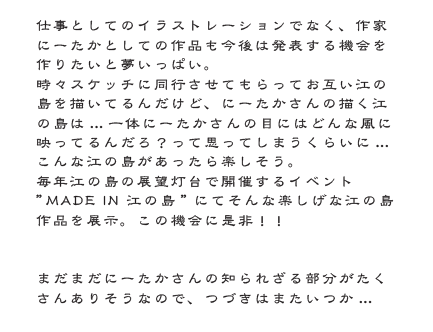 仕事としてのイラストレーションでなく、作家
に一たかとしての作品も今後は発表する機会を
作りたいと夢いっぱい。
時々スケッチに同行させてもらってお互い江の
島を描いてるんだけど、に一たかさんの描く江
の島は … 一体に一たかさんの目にはどんな風に
映ってるんだろ？って思ってしまうくらいに …
こんな江の島があったら楽しそう。
毎年江の島の展望灯台で開催するイベント
”MADE IN 江の島 ” にてそんな楽しげな江の島
作品を展示。この機会に是非！！
まだまだに一たかさんの知られざる部分がたく
さんありそうなので、つづきはまたいつか …